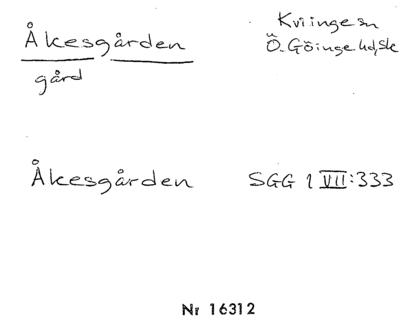 Åkesgården
gård
Kviinge sn
Ö. Göinge hd, Sk
Åkesgården
SGG 1 VII:333
Nr 16312